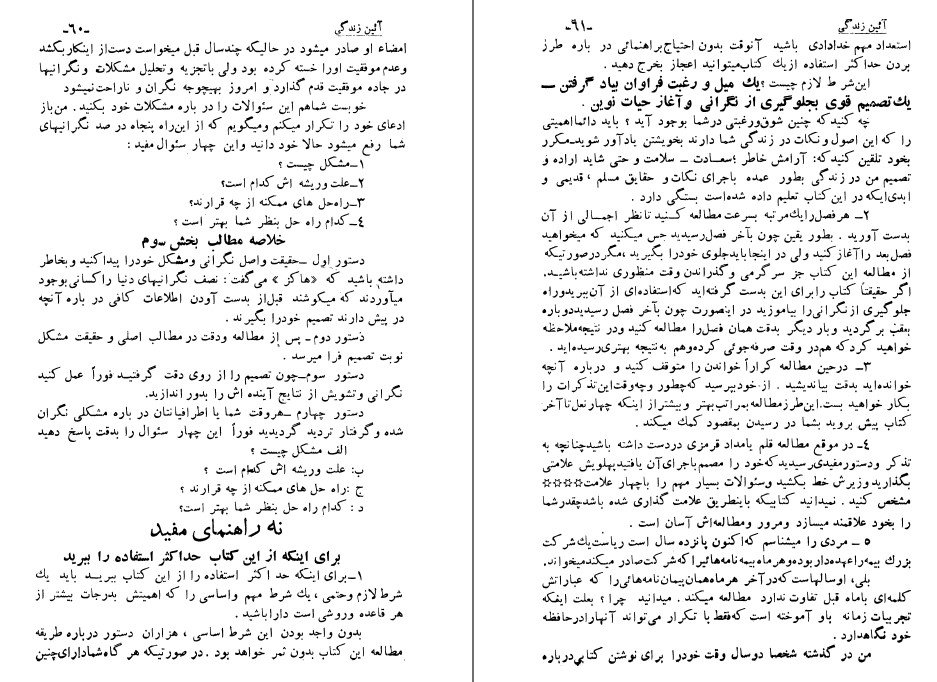 -٦٠- آئین زندگی
امضاء او صادر میشود در حالیکه چندسال قبل میخواست دست‌از اینکار بکشد
وعدم موفقیت اورا خسته کرده بود ولی باتجزیه وتحلیل مشکلات و نگرانیها
در جاده موفقیت قدم گذارد و امروز بهیچوجه نگران و ناراحت‌نمیشود
خوبست شماهم این سئوالات را در باره مشکلات خود بکنید . من‌باز
ادعای خود را تکرار میکنم ومیگویم که از این‌راه پنجاه در صد نگرانیهای
شما رفع میشود حالا خود دانید واین چهار سئوال مفید :
١ـ‌مشکل چیست ؟
٢ـ‌علت وریشه اش کدام است؟
٣ـ‌راه‌حل های ممکنه از چه قرارند؟
٤ـ کدام راه حل بنظر شما بهتر است ؟
خلاصه مطالب بخش سوم
دستور اول ـ حقیقت واصل نگرانی ومشکل خودرا پیداکنید وبخاطر
داشته باشید که «هاکز » می‌گفت : نصف نگرانیهای دنیا را کسانی‌بوجود
میآوردند که میکوشند قبل‌از بدست آوردن اطلاعات کافی در باره آنچه
در پیش دارند تصمیم خودرا بگیرند .
دستور دوم ـ پس از مطالعه ودقت در مطالب اصلی و حقیقت مشکل
نوبت تصمیم فرا میرسد .
دستور سوم ـ چون تصمیم را از روی دقت گرفتید فوراً عمل کنید
نگرانی وتشویش از نتایج آینده اش را بدور اندازید.
دستور چهارم ـ هروقت شما یا اطرافیانتان در باره مشکلی نگران
شده وگرفتار تردید گردیدید فوراً این چهار سئوال را بدقت پاسخ دهید
الف مشکل چیست ؟
ب: علت وریشه اش کدام است ؟
ج :راه حل های ممکنه از چه قرارند ؟
د : کدام راه حل بنظر شما بهتر است؟
نه راهنمای مفید
برای اینکه از این کتاب حداکثر استفاده را ببرید
١ـ‌برای اینکه حد اکثر استفاده را از این کتاب ببرید باید یك
شرط لازم وحتمی ، یك شرط مهم واساسی را که اهمیتش بدرجات بیشتر از
هر قاعده وروشی است داراباشید .
بدون واجد بودن این شرط اساسی ، هزاران دستور درباره طریقه
مطالعه این کتاب بدون ثمر خواهد بود . در صورتیکه هر گاه شمادارای‌چنین
-٩١- آئین زندگی
استعداد مهم خدادادی باشید آنوقت بدون احتیاج براهنمائی در باره طرز
بردن حداکثر استفاده ازیك کتاب‌میتوانید اعجاز بخرج دهید .
این‌شرط لازم چیست ؟یك میل و رغبت فراوان بیاد گرفتن ــ
یك‌تصمیم قوی بجلوگیری از نگرانی وآغاز حیات نوین .
چه کنیدکه چنین شوق‌ورغبتی درشما بوجود آید ؟ باید دائمااهمیتی
را که این اصول ونکات در زندگی شما دارند بخویشتن یادآور شوید.مکرر
بخود تلقین کنیدکه: آرامش خاطر ؛سعادت ـ سلامت و حتی شاید اراده و
تصمیم من در زندگی بطور عمده باجرای نکات و حقایق مسلم ، قدیمی و
ابدی‌ایکه در این‌کتاب تعلیم داده شده‌است بستگی دارد .
٢ـ هر فصل‌رایك‌مرتبه بسرعت مطالعه کنید تانظر اجمالی از آن
بدست آورید . بطور یقین چون بآخر فصل‌رسیدید حس میکنید که میخواهید
فصل‌بعد راآغازکنید ولی در اینجابایدجلوی خودرا بگیرید،مگر درصورتیکه
از مطالعه این کتاب جز سرگرمی وگذراندن وقت منظوری نداشته‌باشید.
اگر حقیقتاً کتاب رابرای این بدست گرفته‌اید که‌استفاده‌ای از آن ببریدوراه
جلوگیری ازنگرانی‌را بیاموزید در اینصورت چون بآخر فصل رسیدیددوباره
بعقب برگردید وبار دیگر بدقت همان فصل‌را مطالعه کنید ودر نتیجه‌ملاحظه
خواهید کردکه هم‌در وقت صرفه‌جوئی کرده‌وهم به‌نتیجه بهتری‌رسیده‌اید .
٣ـ درحین مطالعه کراراً خواندن را متوقف کنید و درباره آنچه
خوانده‌اید بدقت بیاندیشید . از خودبپرسید که‌چطور وچه‌وقت‌این‌تذکرات را
بکار خواهید بست.این‌طرزمطالعه‌بمراتب‌بهتر وبیشتراز اینکه چهارنعل‌تاآخر
کتاب پیش بروید بشما در رسیدن بمقصود کمك میکند .
٤ـ در موقع مطالعه قلم یامداد قرمزی دردست داشته باشیدچنانچه به
تذکر ودستورمفیدی‌رسیدیدکه‌خود را مصمم باجرای‌آن یافتیدپهلویش علامتی
بگذاریدوزیرش خط بکشید وسئوالات بسیار مهم را باچهار علامت****
مشخص کنید . نمیدانید کتابیکه باینطریق علامت گذاری شده باشدچقدرشما
را بخود علاقمند میسازد ومرور ومطالعه‌اش آسان است .
٥ ـ مردی را میشناسم که‌اکنون پانزده سال است ریاست‌یك‌شرکت
بزرك بیمه‌راعهده‌دار بوده‌وهرماه‌بیمه نامه‌هائیراکه‌شرکت‌صادر میکندمیخواند.
بلی، اوسالهاست‌که‌درآخر هرماه‌همان‌بیمان‌نامه‌هائی‌را که عباراتش
کلمه‌ای باماه قبل تفاوت ندارد مطالعه میکند. میدانید چرا؟ بعلت اینکه
تجربیات زمانه باو آموخته است که‌فقط با تکرار می‌تواند آنهارادرحافظه
خود نگاهدارد .
من در گذشته شخصا دوسال وقت خودرا برای نوشتن کتابی‌درباره